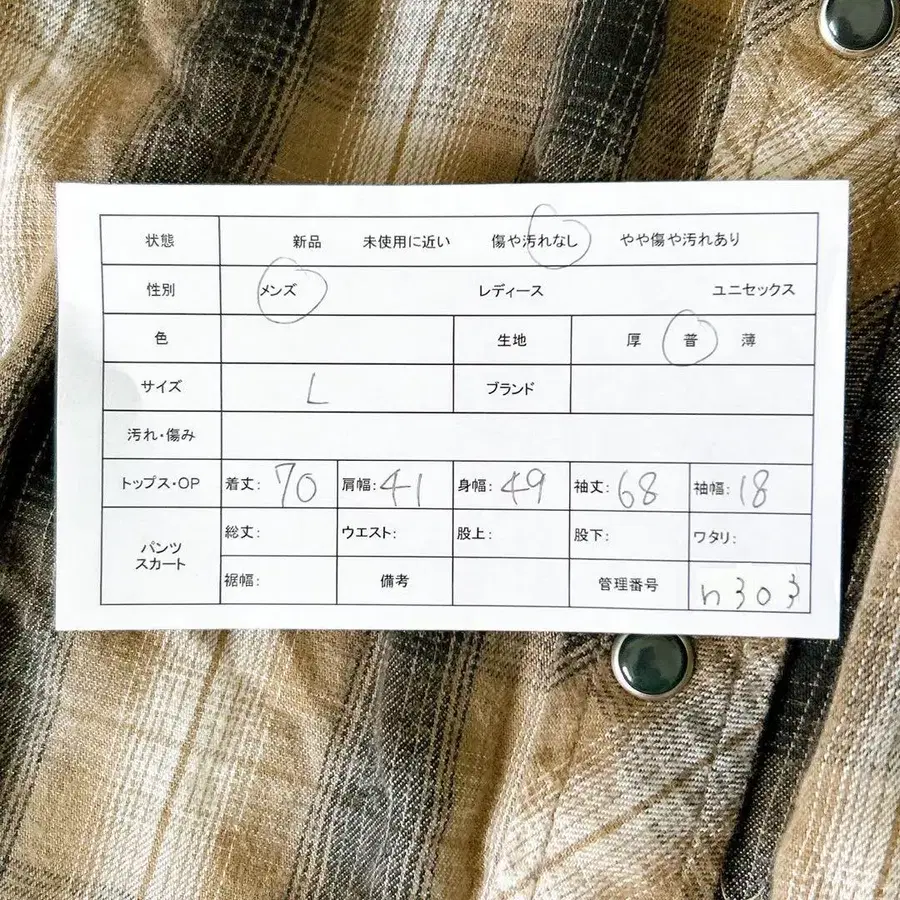 状態 新品 未使用に近い 傷や汚れなし やや傷や汚れあり
性別 メンズ レディース ユニセックス
色 生地 厚 普 薄
サイズ L ブランド
汚れ・傷み
トップス・OP 着丈: 70 肩幅: 41 身幅: 49 袖丈: 68 袖幅: 18
パンツ
スカート
総丈: ウエスト: 股上: 股下: ワタリ:
裾幅: 備考 管理番号 n303